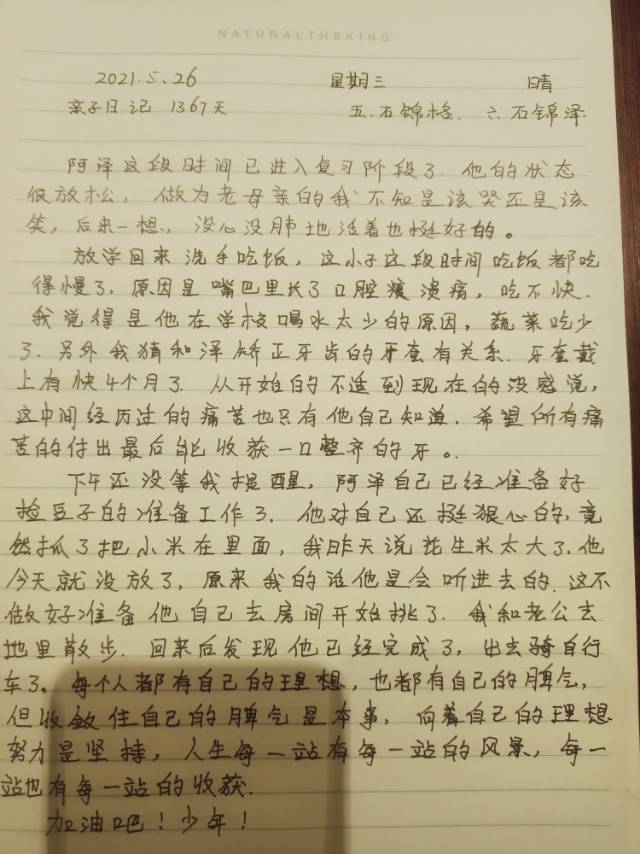 NATURALTHEKING
2021.5.26 星期三 晴
亲子日记 1367天 五.石锦格. 六.石锦泽
阿泽这段时间已进入复习阶段了.他的状态
很放松,做为老母亲的我不知是该哭还是该
笑,后来一想,没心没肺地活着也挺好的。
放学回来洗手吃饭,这小子这段时间吃饭都吃
得慢了,原因是嘴巴里长了口腔溃疡,吃不快.
我觉得是他在学校喝水太少的原因,蔬菜吃少
了.另外我猜和泽矫正牙齿的牙套有关系.牙套戴
上有快4个月了.从开始的不适到现在的没感觉,
这中间经历过的痛苦也只有他自己知道.希望所有痛
苦的付出最后能收获一口整齐的牙。.
下午还没等我提醒,阿泽自己已经准备好
捡豆子的准备工作了.他对自己还挺狠心的,竟
然抓了把小米在里面,我昨天说花生米太大了.他
今天就没放了,原来我的话他是会听进去的.这不
做好准备他自己去房间开始挑了.我和老公去
地里散步.回来后发现他已经完成了,出去骑自行
车了。每个人都有自己的理想,也都有自己的脾气,
但收敛住自己的脾气是本事,向着自己的理想
努力是坚持,人生每一站有每一站的风景,每一
站也有每一站的收获.
加油吧!少年!